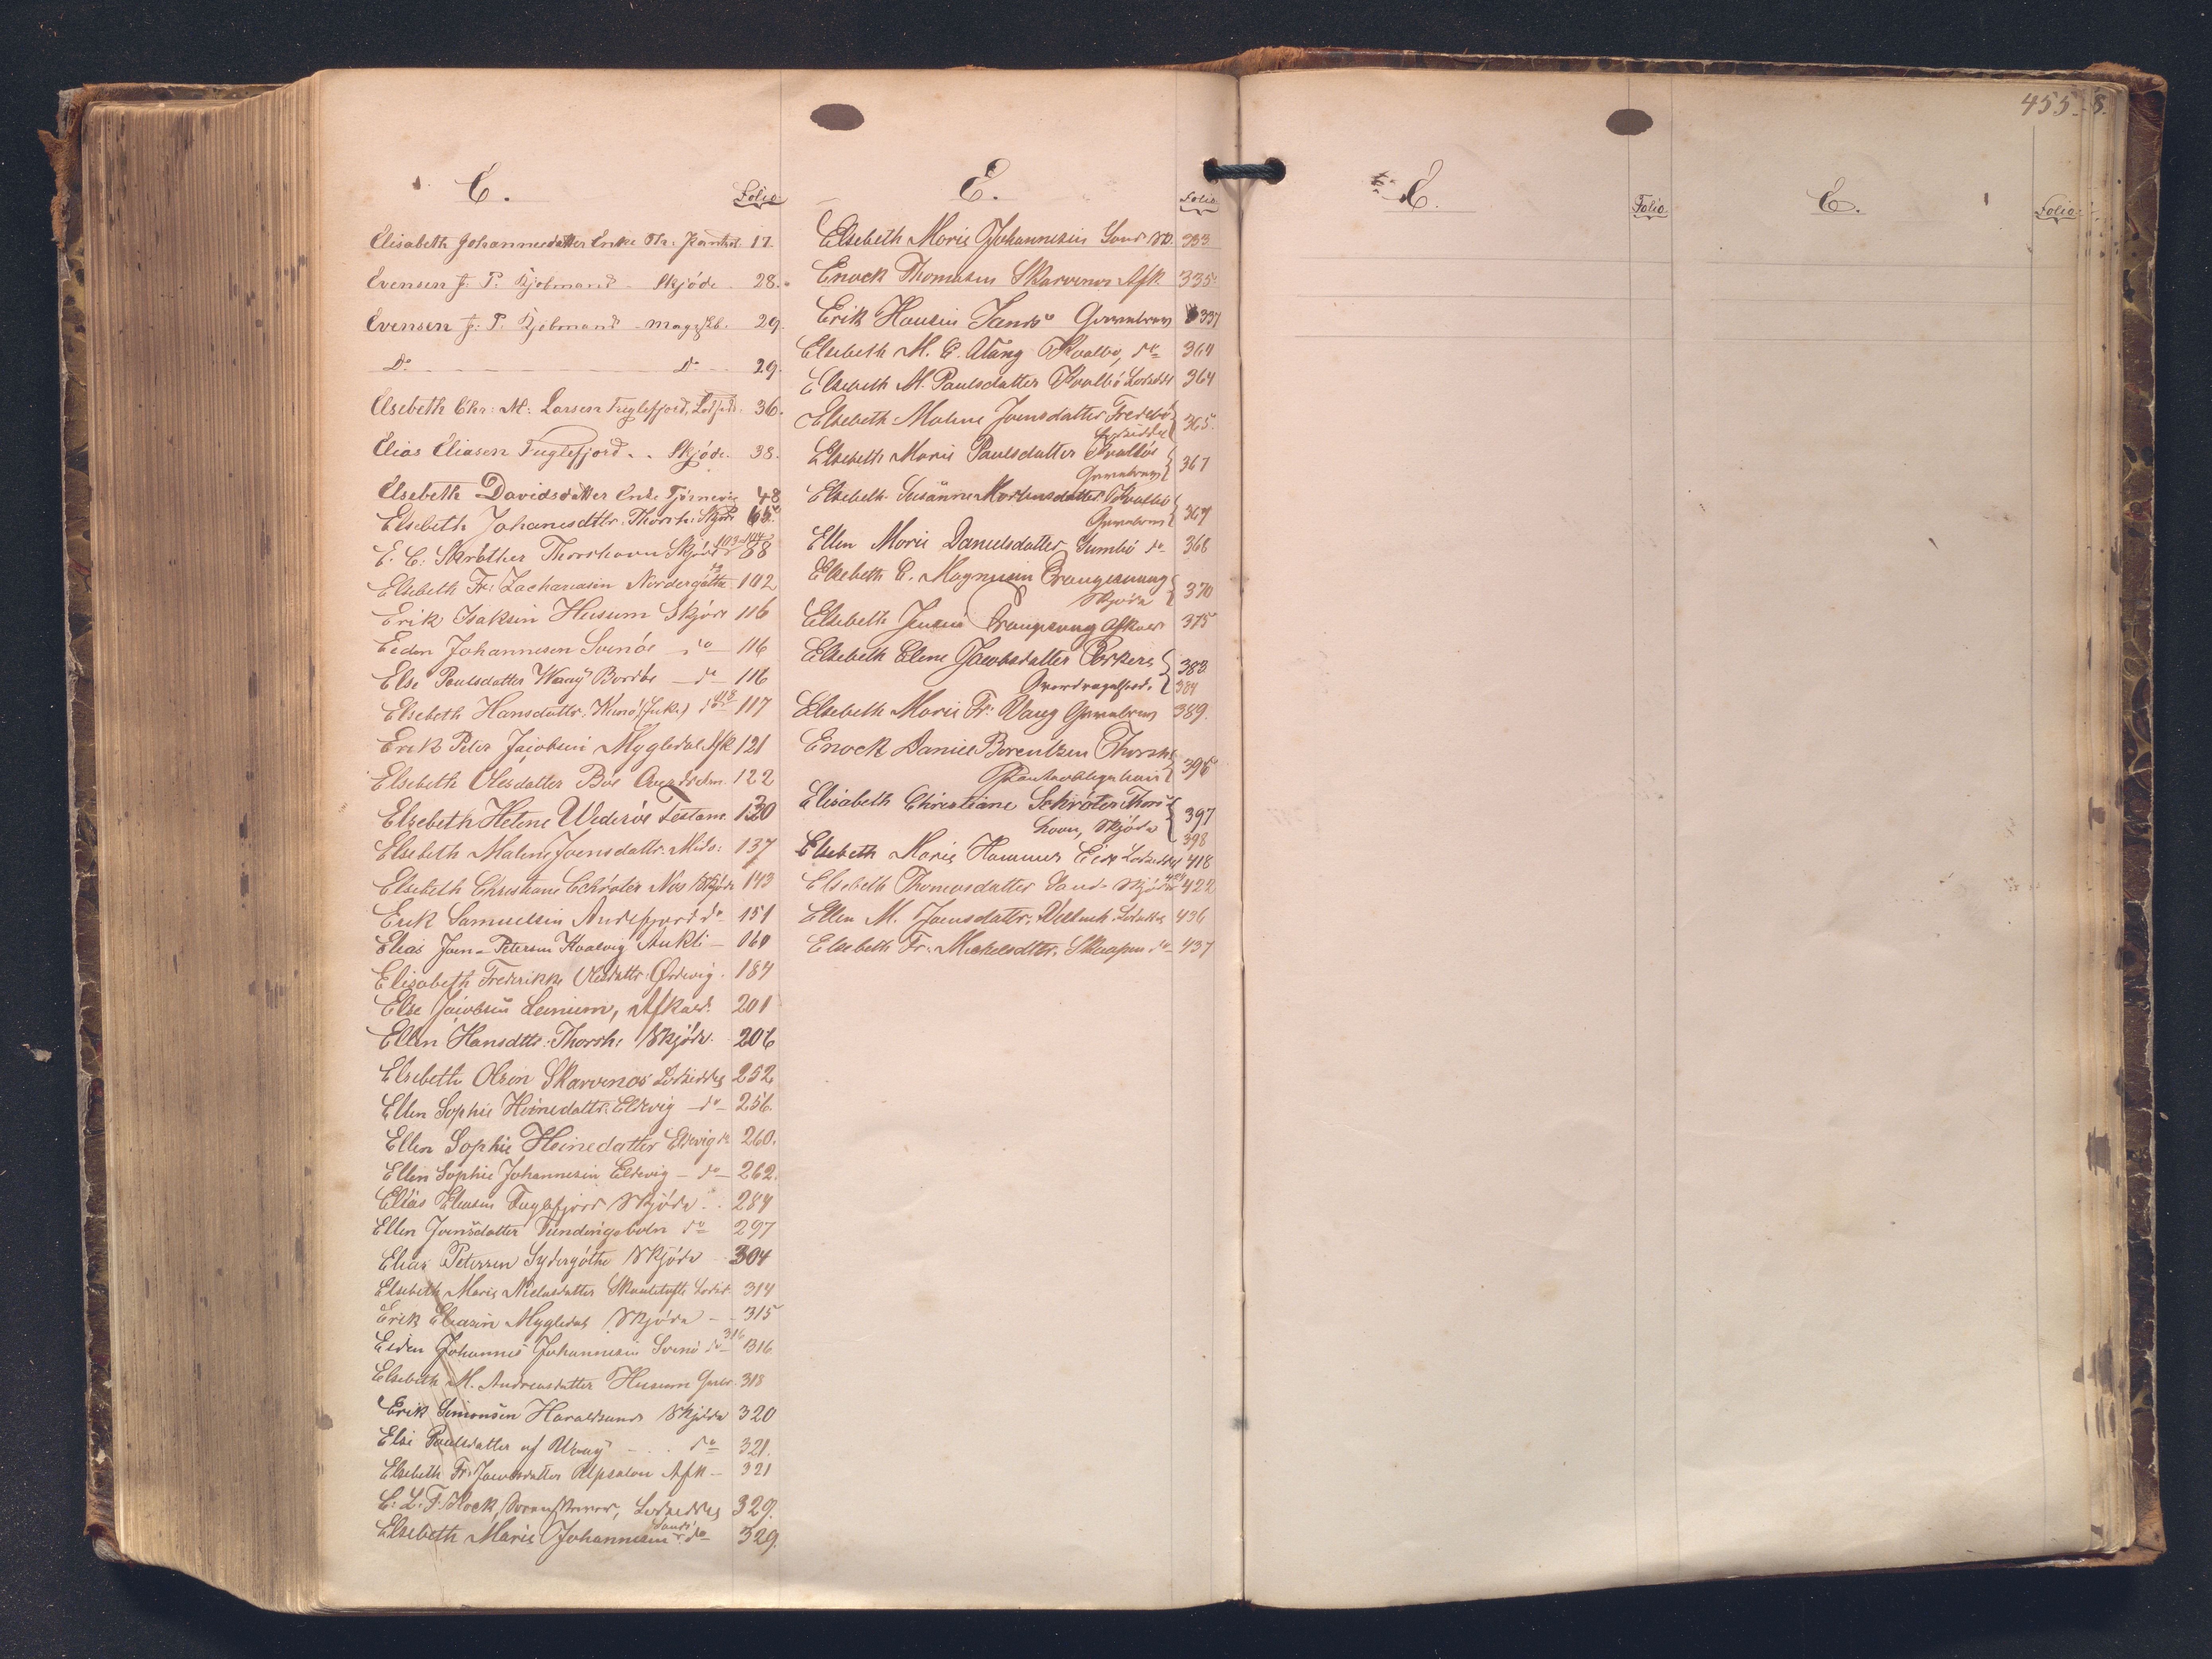 E.
Folio
Elisabeth Johannesdatter Enke 17.
Evensen J. P. Kjøbmand - Skjöde - 28.
Evensen J. P. Kjøbmand - 29.
Do do 29.
Elsebeth Chr: M: Larsen Fuglefjord, 36.
Elias Eliasen Fuglefjord . . Skjöde. 38.
Elsebeth Davidsdatter Enke Tjörnevig 48
Elsebeth Johanesdttr. Thorsh. Skjöde 65.
E. C. Skröther Thorshavn Skjöde 103-104 88
Elsebeth Fr: Zachariasen Nordergøtha 102
Erik Isaksen Husum Skjöde 116
Eiden Johannesen Svinöe do 116
Else Paulsdatter Waag Bordöe do 116
Elsebeth Hansdattr. Kunö (Enke) do 118 117
Erik Peter Jacobsen Mygledal Afk 121
Elsebeth Olesdatter Böe 122
Elsebeth Helene Wideröe Testam. 130
Elsebeth Malene Joensdattr. Midv: 137
Elsebeth Christiane Schröter Nes Skjöde 143
Erik Samuelsen Andefjord do 151
Elias Joen-Petersen Kvalvig Aukti - 160
Elisabeth Frederikke Olesdattr: Ordevig. 184
Else Jacobsen Leinum, Afkald. 201
Ellen Hansdttr. Thorsh: Skjöde. 206
Elsebeth Olsen Skarvenes Lodseddel 252
Ellen Sophie Heinedattr. Eldevig - do - 256.
Ellen Sophie Heinedatter Eldevig do 260.
Ellen Sophie Johannesen Eldevig - do - 262.
Elias Eliasen Fuglefjord Skjöde . . 284
Ellen Joensdatter Vendingsbotn do 297
Elias Petersen Sydergöthe Skjöde 304
Elsebeth Marie Nielsdatter 314
Erik Eliasen Mygledal Skjöde - 315
Eiden Johannes Johannesen Svinö do 316 316
Elsebeth M. Andreasdatter Husum 318
Erik Simonsen Haraldsund Skjöde 320
Else Paulsdatter af Waag - . . do 321.
Elsebeth Fr. Jacobsdatter Afk - 321
E. L. F. Lodseddel 329.
Elsebeth Marie Johannesen Sand do 329.
E.
Folio
Elsebeth Marie Johannesen Sand do. 333
Enock Thomasen Skarvenes Afk. 335
Erik Hansen Sandö 337
Elsebeth M. E. Vang Kvalbö, do 364
Elsebeth M. Paulsdatter Kvalbö Lodseddel 364
Elsebeth Malene Joensdatter Frodebö
Lodseddel 365.
Elsebeth Marie Paulsdatter Kvalböe
367
Elsebeth Susanne Mortensdatter Kvalbö
367
Ellen Marie Danielsdatter Sumbö do 368
Elsebeth E. Magnusen
Skjöde 370
Elsebeth Jensen Afkald 375
Elsebeth Elene Jacobsdatter Porkere
383
384
Elsebeth Marie Fr. Vang 389.
Enock Daniel Berentsen Thorsh
Panteobligation 396
Elisabeth Christiane Schröter Thors
havn, Skjöde 397
398
Elsebeth Marie Hammer Eide Lodseddel 418
Elsebeth Thomasdatter Sand - Skjöde 422
Ellen M. Joensdattr. 436
Elsebeth Fr: Michelsdttr. do - 437
E.
Folio
455
E.
Folio